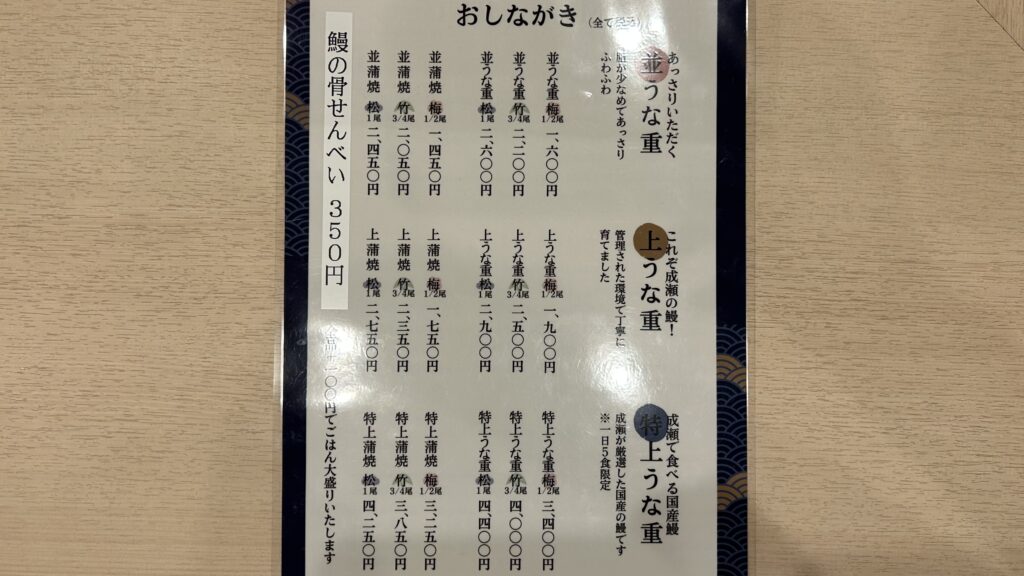 おしながき
あっさりいただく
並うな重
脂が少なめであっさり
ふわふわ
並うな重 梅 1/2尾 一、六〇〇円
並うな重 竹 3/4尾 二、二〇〇円
並うな重 松 1尾 二、六〇〇円
並蒲焼 梅 1/2尾 一、四五〇円
並蒲焼 竹 3/4尾 二、〇五〇円
並蒲焼 松 1尾 二、四五〇円
これぞ成瀬の鰻！
上うな重
管理された環境で丁寧に
育てました
上うな重 梅 1/2尾 一、九〇〇円
上うな重 竹 3/4尾 二、五〇〇円
上うな重 松 1尾 二、九〇〇円
上蒲焼 梅 1/2尾 一、七五〇円
上蒲焼 竹 3/4尾 二、三五〇円
上蒲焼 松 1尾 二、七五〇円
成瀬で食べる国産鰻
特上うな重
成瀬が厳選した国産の鰻です
※一日5食限定
特上うな重 梅 1/2尾 三、四〇〇円
特上うな重 竹 3/4尾 四、〇〇〇円
特上うな重 松 1尾 四、四〇〇円
特上蒲焼 梅 1/2尾 三、二五〇円
特上蒲焼 竹 3/4尾 三、八五〇円
特上蒲焼 松 1尾 四、二五〇円
鰻の骨せんべい 350円
一〇〇円でごはん大盛りいたします